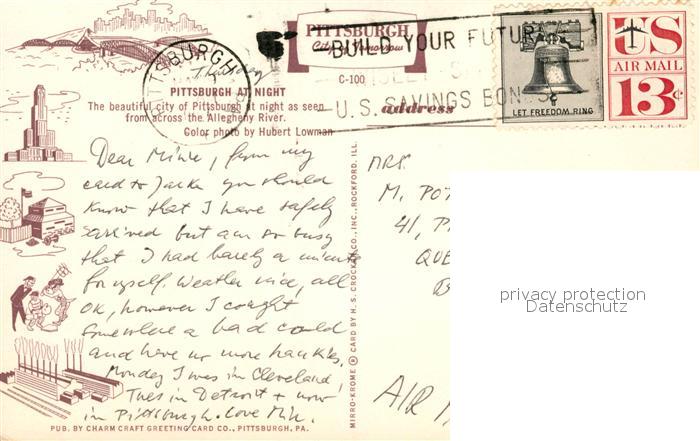 PITTSBURGH
City of Tomorrow
C-100
PITTSBURGH
BUILD YOUR FUTURE
U.S. SAVINGS BONDS
US
AIR MAIL
13¢
LET FREEDOM RING
Thursday
PITTSBURGH AT NIGHT
The beautiful city of Pittsburgh at night as seen
from across the Allegheny River.
Color photo by Hubert Lowman
address
Dear Mike, from my
card to you should
know that I have safely
arrived but am so busy
that I had barely a minute
for myself. Weather nice, all
OK, however I caught
somewhere a bad cold
and have no more hankies.
Monday I was in Cleveland,
Tues in Detroit + now
in Pittsburgh. Love
PUB. BY CHARM CRAFT GREETING CARD CO., PITTSBURGH, PA.
MIRRO-KROME ® CARD BY H. S. CROCKER CO., INC., ROCKFORD, ILL.
MRS.
M. POT
41, P
QUE
AIR
privacy protection
Datenschutz